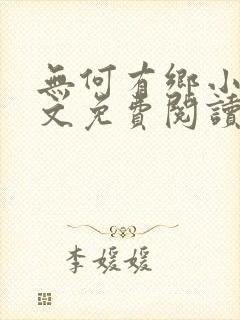 無何有鄉小
文免費閱讀
李媛媛